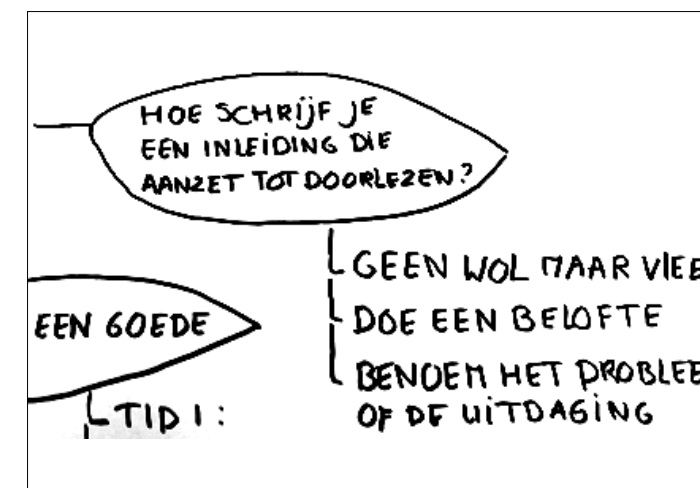 HOE SCHRIJF JE
EEN INLEIDING DIE
AANZET TOT DOORLEZEN?
GEEN WOL MAAR VLEE
DOE EEN BELOFTE
BENOEM HET PROBLEE
OF DE UITDAGING
EEN GOEDE
TID 1: